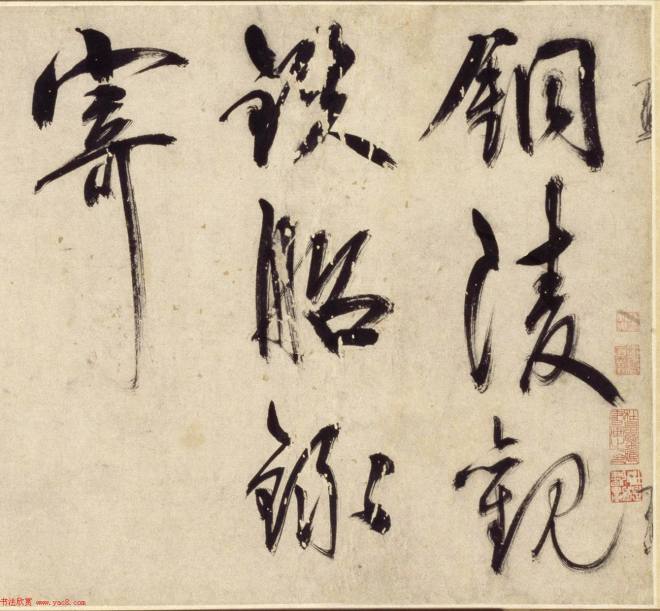 銅陵觀
銕船錄
寄
书法欣赏 www.yac8.com